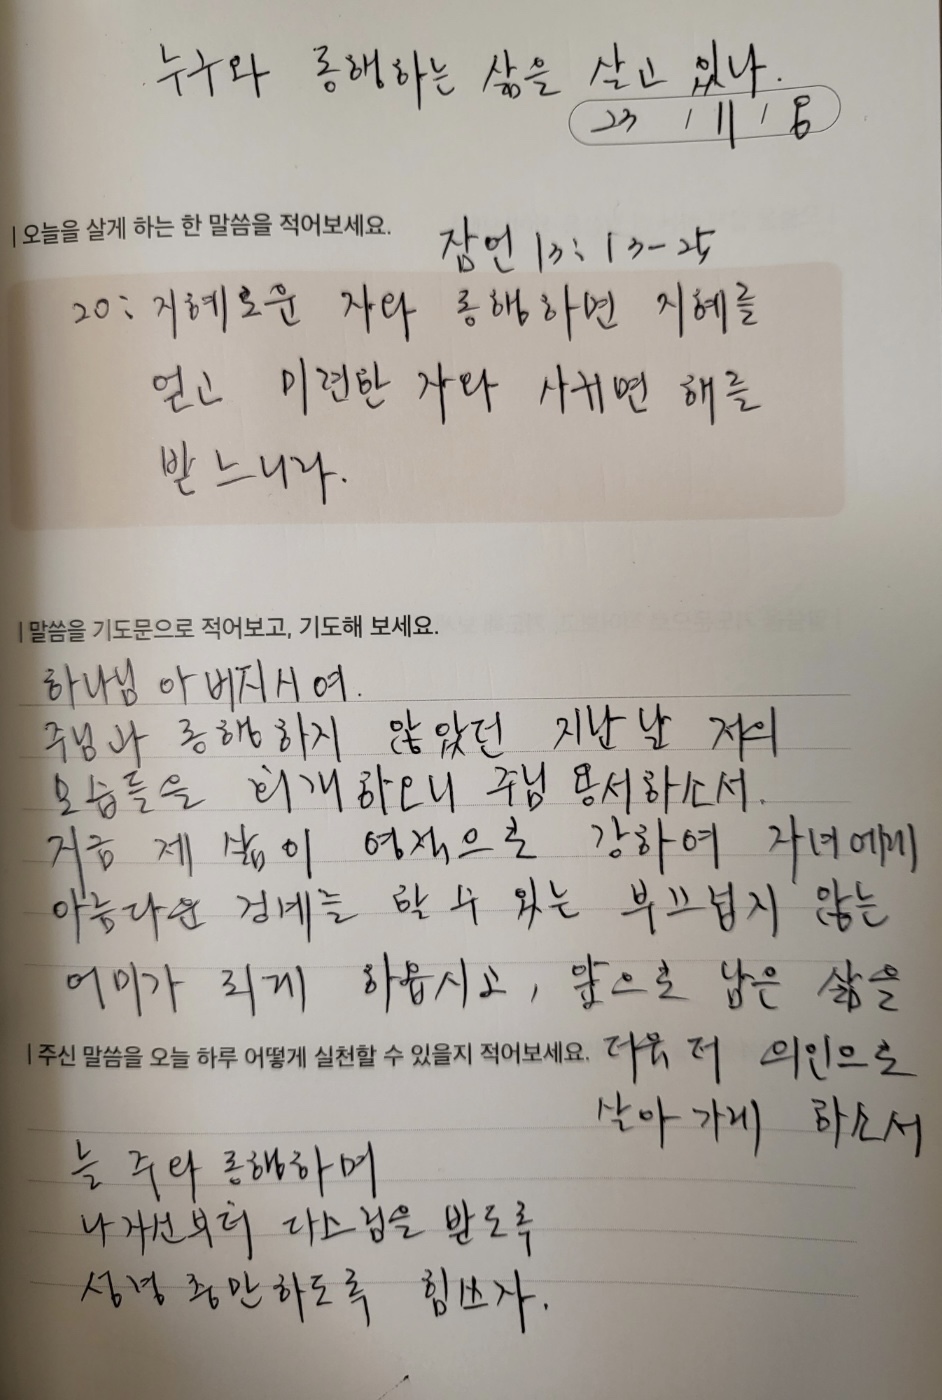 누구와 동행하는 삶을 살고 있나.
23 / 11 / 8
|오늘을 살게 하는 한 말씀을 적어보세요.
잠언 13: 13-25
20: 지혜로운 자와 동행하면 지혜를
얻고 미련한 자와 사귀면 해를
받느니라.
|말씀을 기도문으로 적어보고, 기도해 보세요.
하나님 아버지시여.
주님과 동행하지 않았던 지난날 저의
모습들을 회개하오니 주님 용서하소서.
지금 제 삶이 영적으로 강하여 자녀에게
아름다운 경계를 할 수 있는 부끄럽지 않는
어미가 되게 하옵시고, 앞으로 남은 삶을
더욱 더 의인으로
살아가게 하소서
|주신 말씀을 오늘 하루 어떻게 실천할 수 있을지 적어보세요.
늘 주와 동행하며
나 자신부터 다스림을 받도록
성령 충만하도록 힘쓰자.